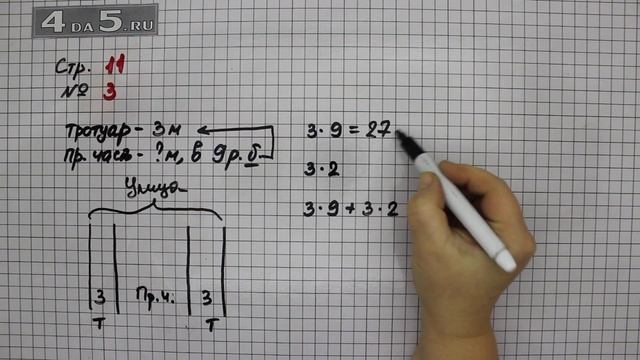 4DA5.RU
Стр. 11
№ 3
тротуар - 3м
пр. часть - ? м, в 9 р. б
Улица
3 Пр.ч. 3
Т Т
3·9=27
3·2
3·9+3·2